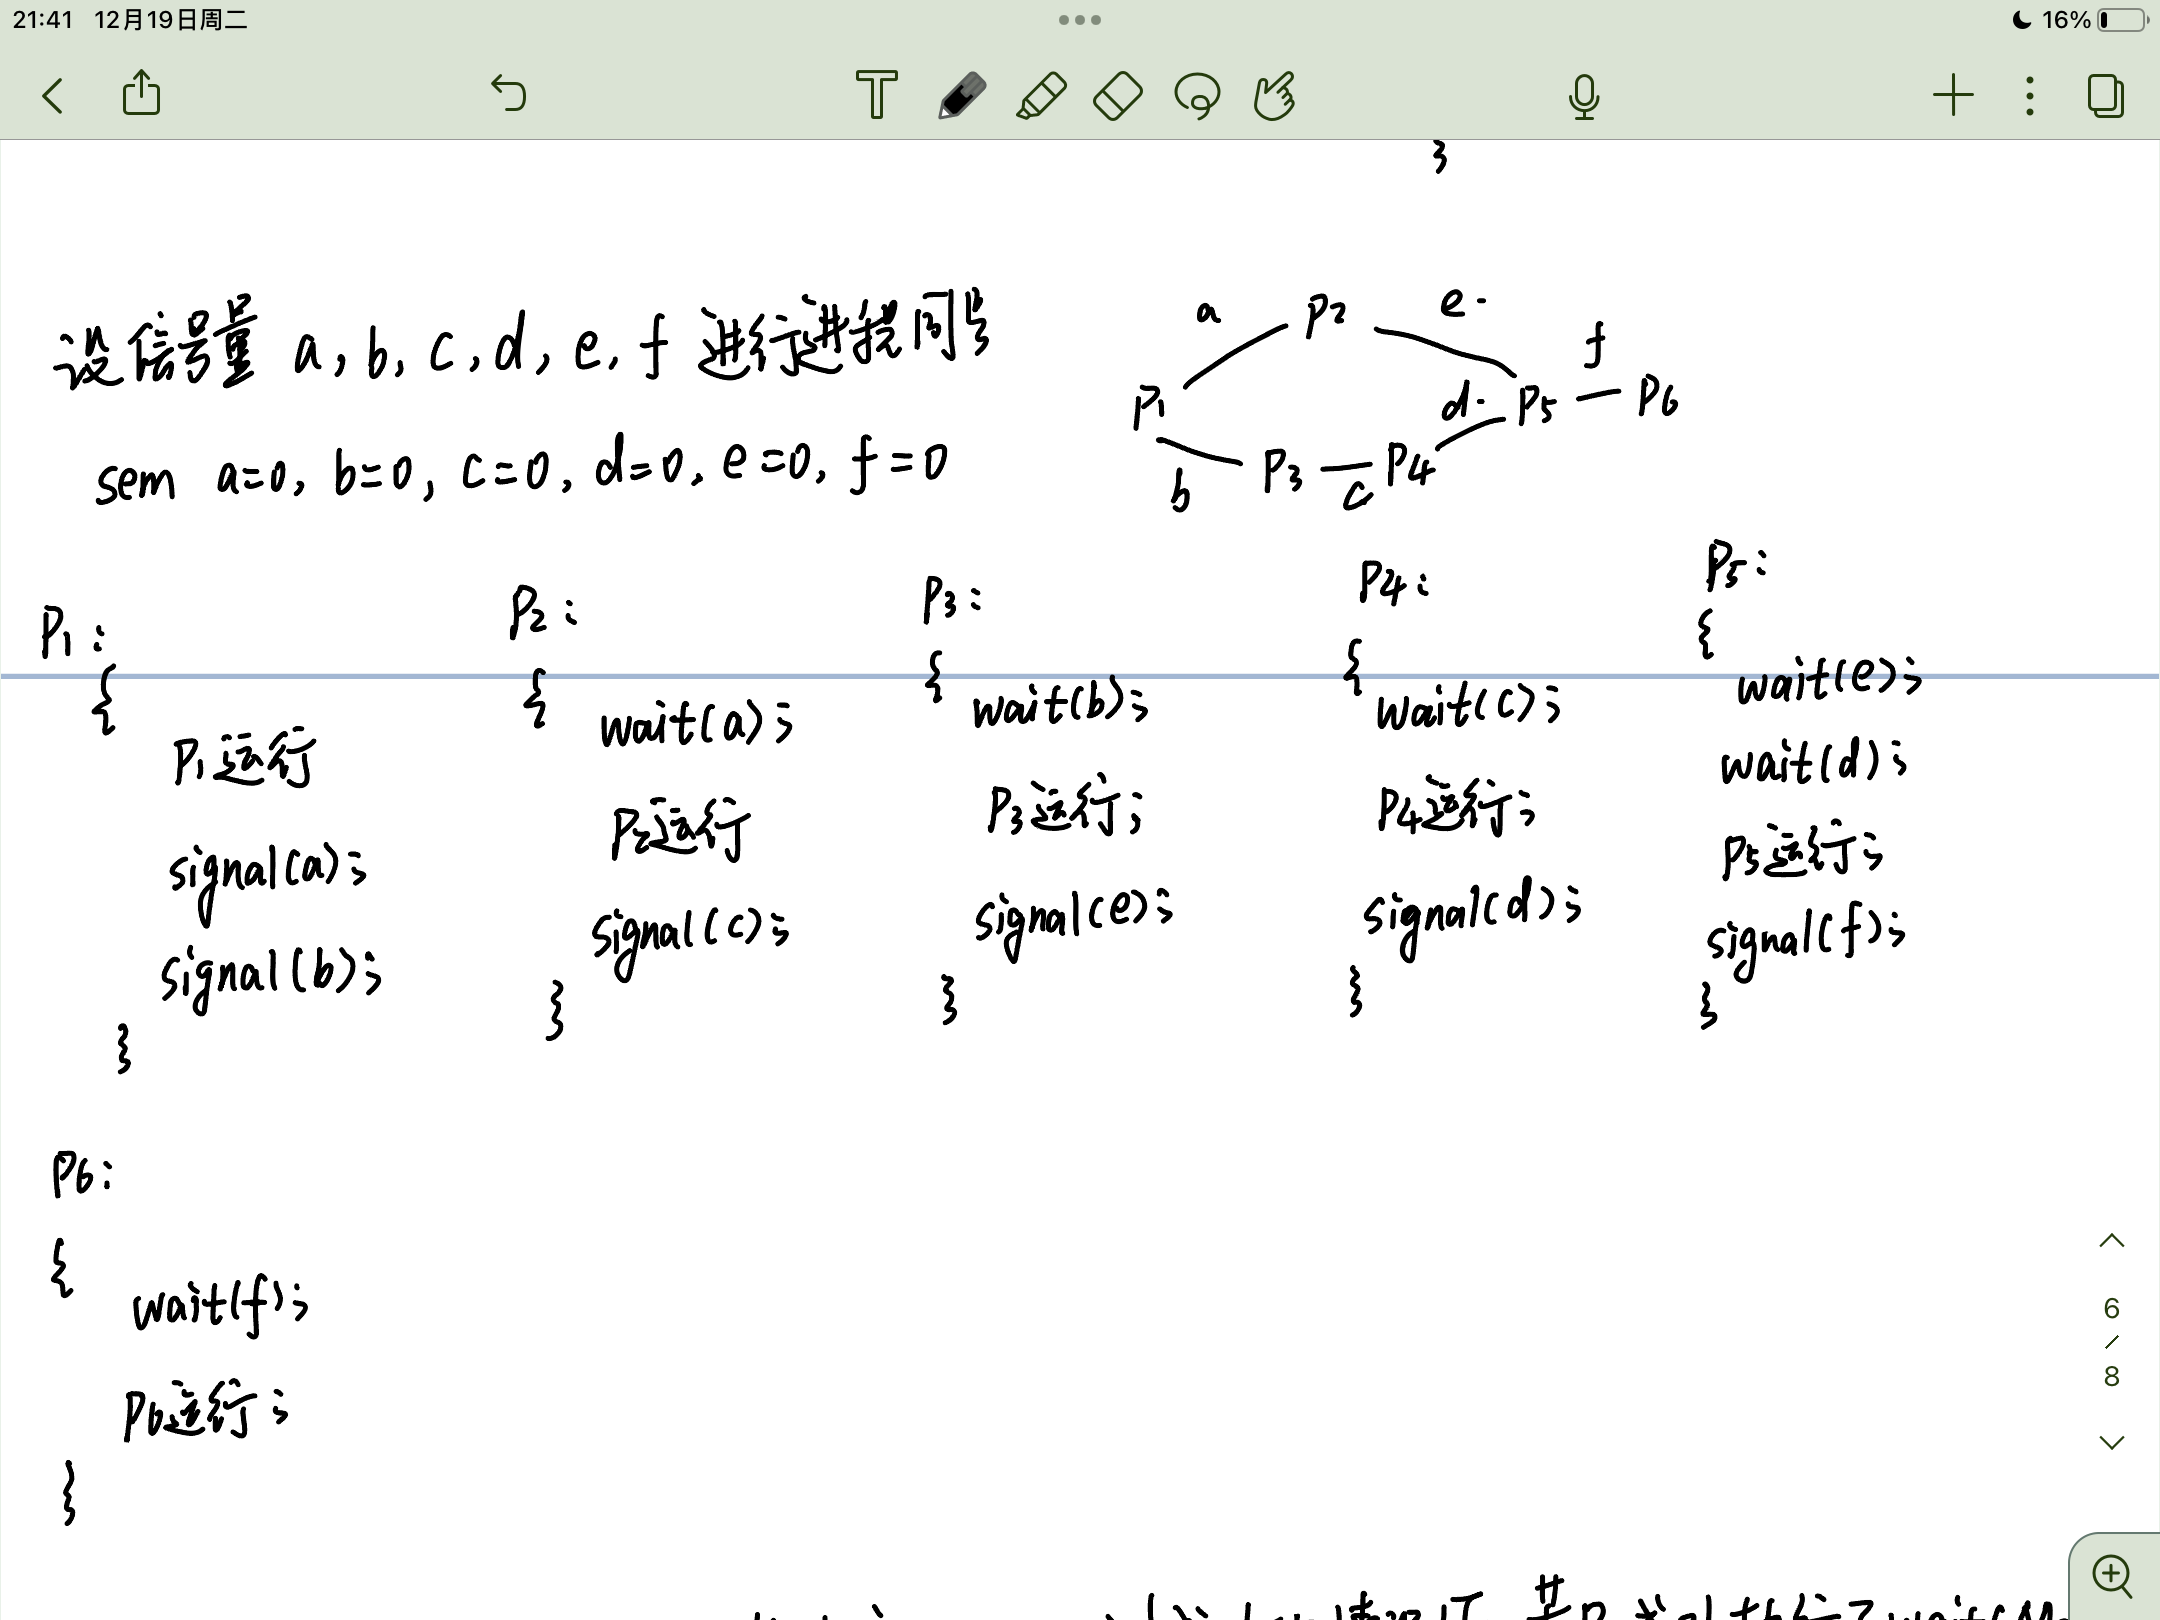 21:41 12月19日周二
16%
}
设信号量 a, b, c, d, e, f 进行进程同步
sem a=0, b=0, c=0, d=0, e=0, f=0
a P2 e.
f
P1 d. P5 P6
b P3 c P4
P1:
{
P1运行
signal(a);
signal(b);
}
P2:
{
wait(a);
P2运行
signal(c);
}
P3:
{
wait(b);
P3运行;
signal(e);
}
P4:
{
wait(c);
P4运行;
signal(d);
}
P5:
{
wait(e);
wait(d);
P5运行;
signal(f);
}
P6:
{
wait(f);
P6运行;
}
6
/
8